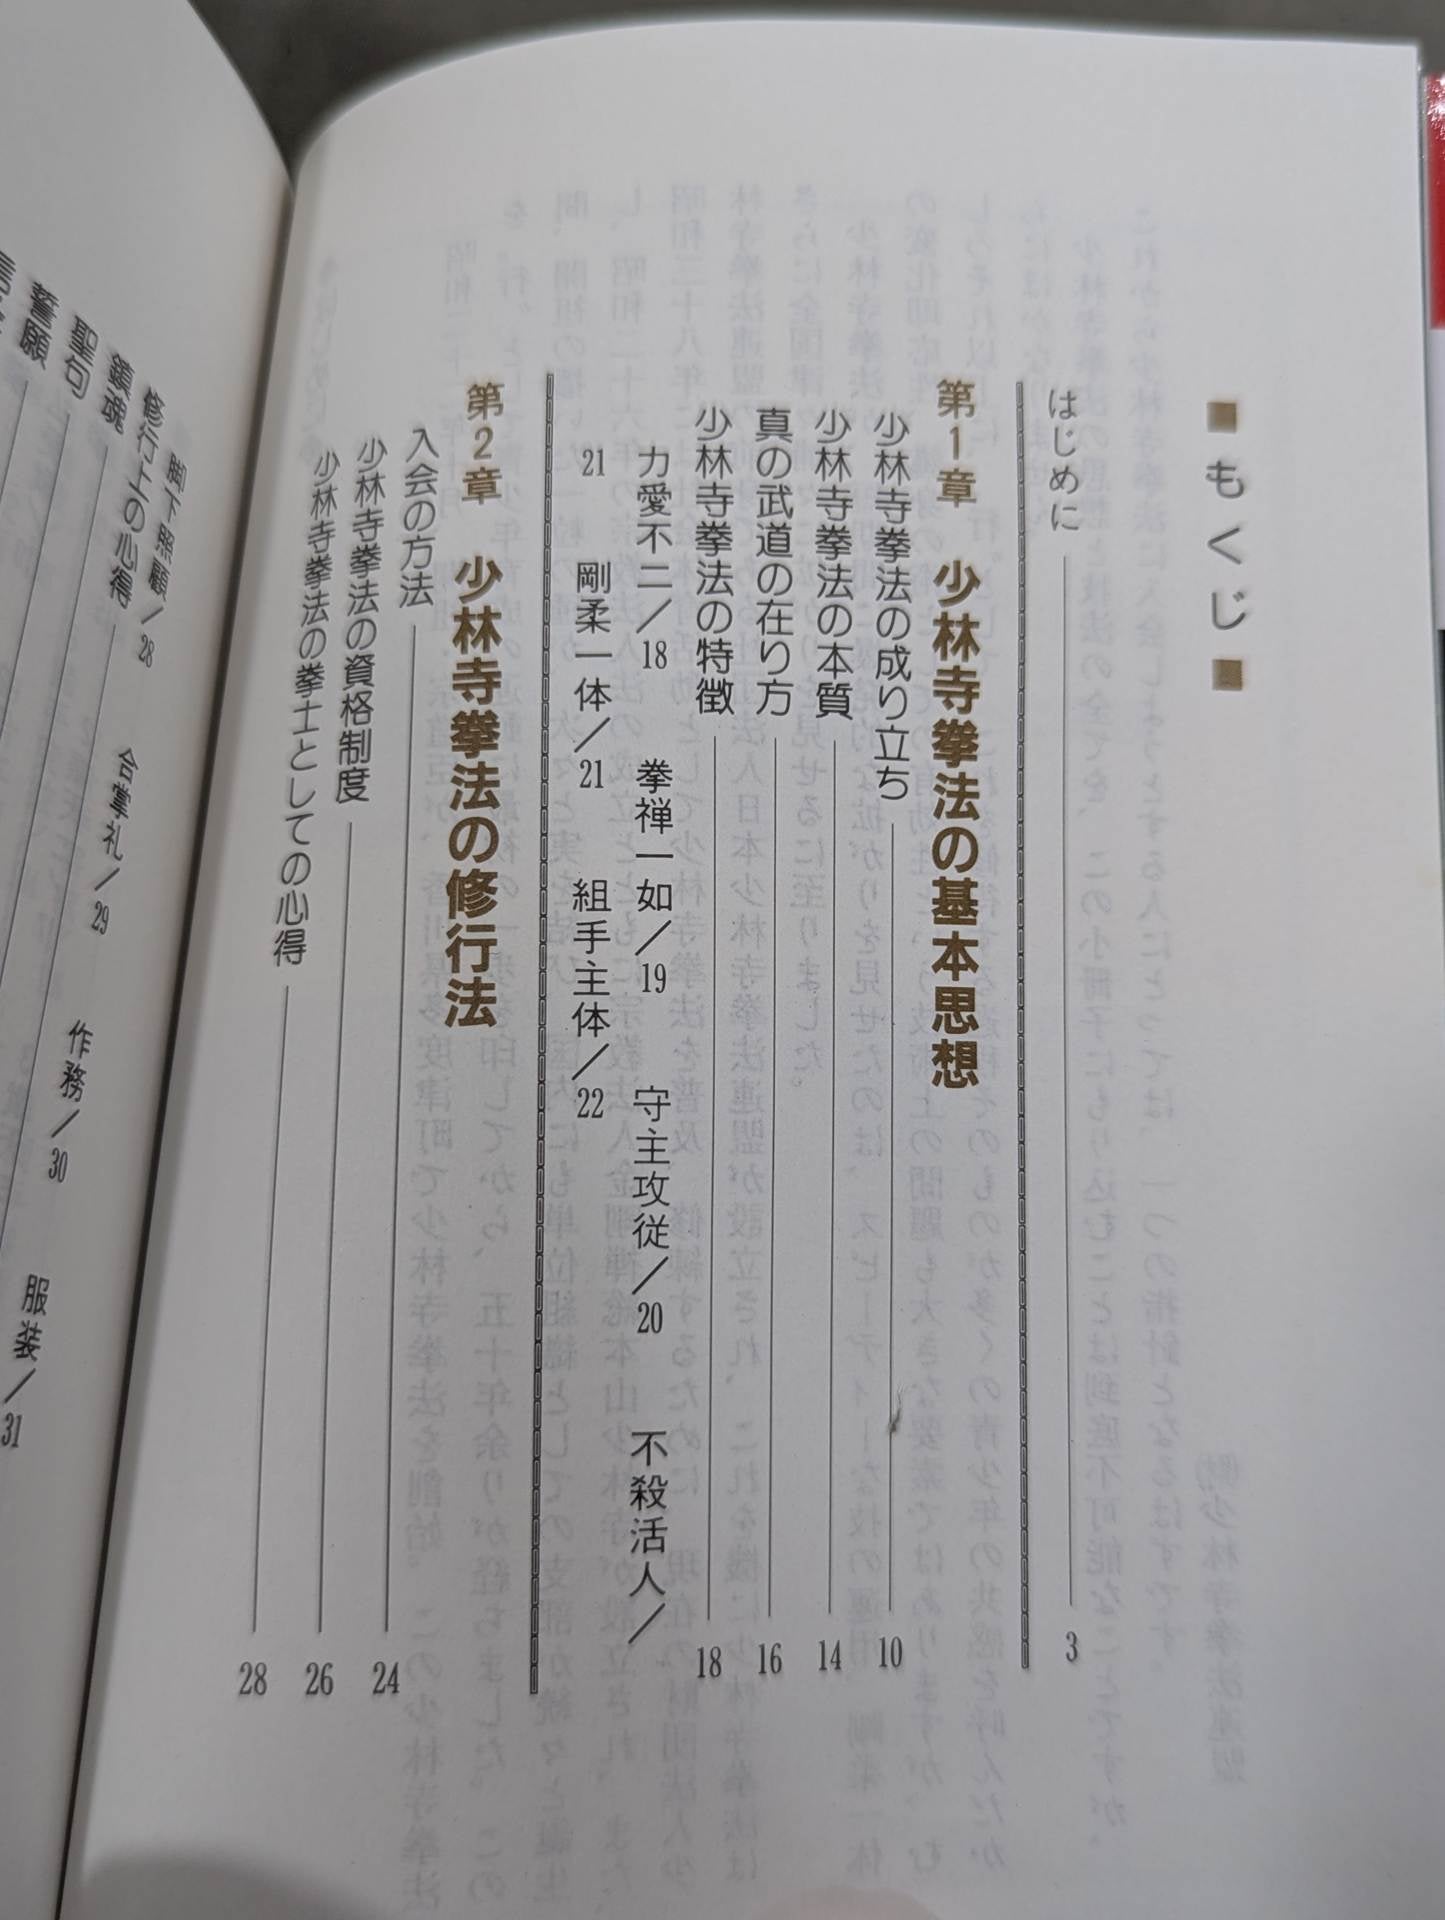 ■もくじ■
はじめに 3
第1章 少林寺拳法の基本思想
少林寺拳法の成り立ち 10
少林寺拳法の本質 14
真の武道の在り方 16
少林寺拳法の特徴 18
力愛不二／18 拳禅一如／19 守主攻従／20 不殺活人／
21 剛柔一体／21 組手主体／22
第2章 少林寺拳法の修行法
入会の方法 24
少林寺拳法の資格制度 26
少林寺拳法の拳士としての心得 28
脚下照顧／28 合掌礼／29 作務／30 服装／31
修行上の心得
鎮魂
聖句
誓願